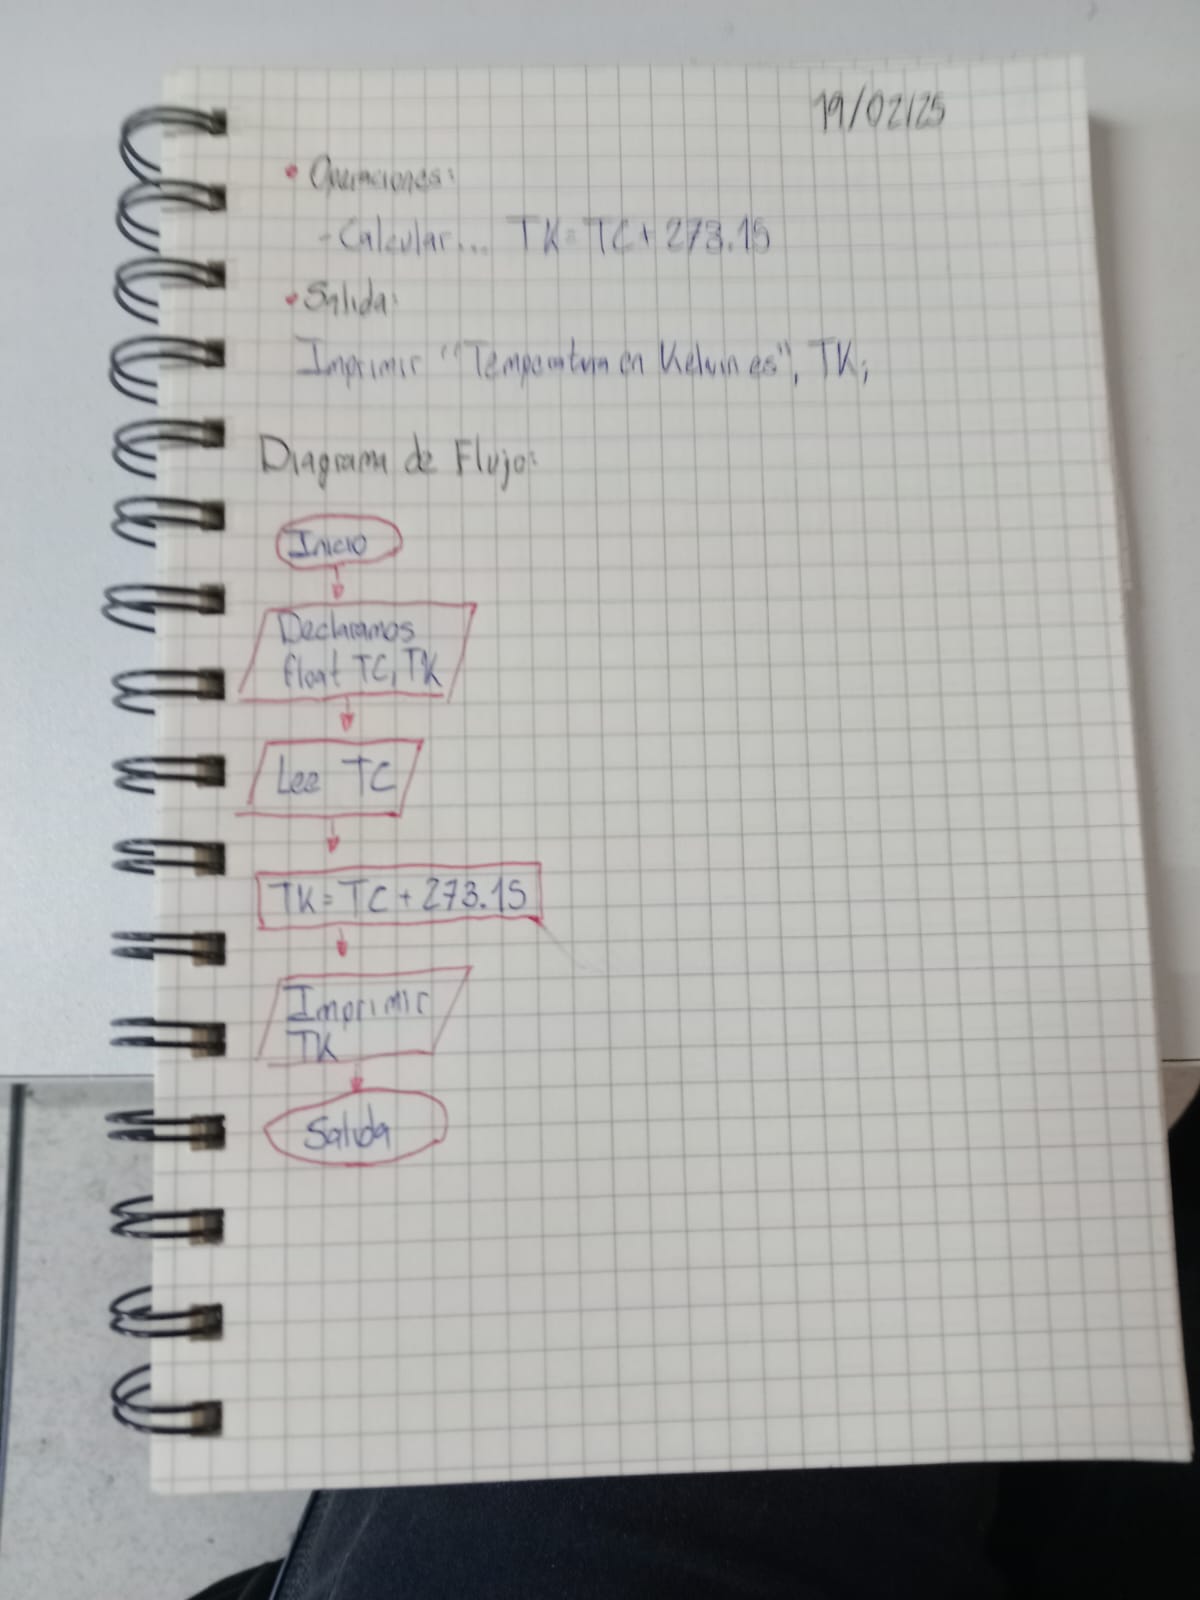 19/02/25
• Operaciones:
- Calcular... TK = TC + 273.15
• Salida:
Imprimir "Temperatura en Kelvin es", TK;
Diagrama de Flujo:
Inicio
Declaramos
float TC, TK
Lee TC
TK = TC + 273.15
Imprimir
TK
Salida